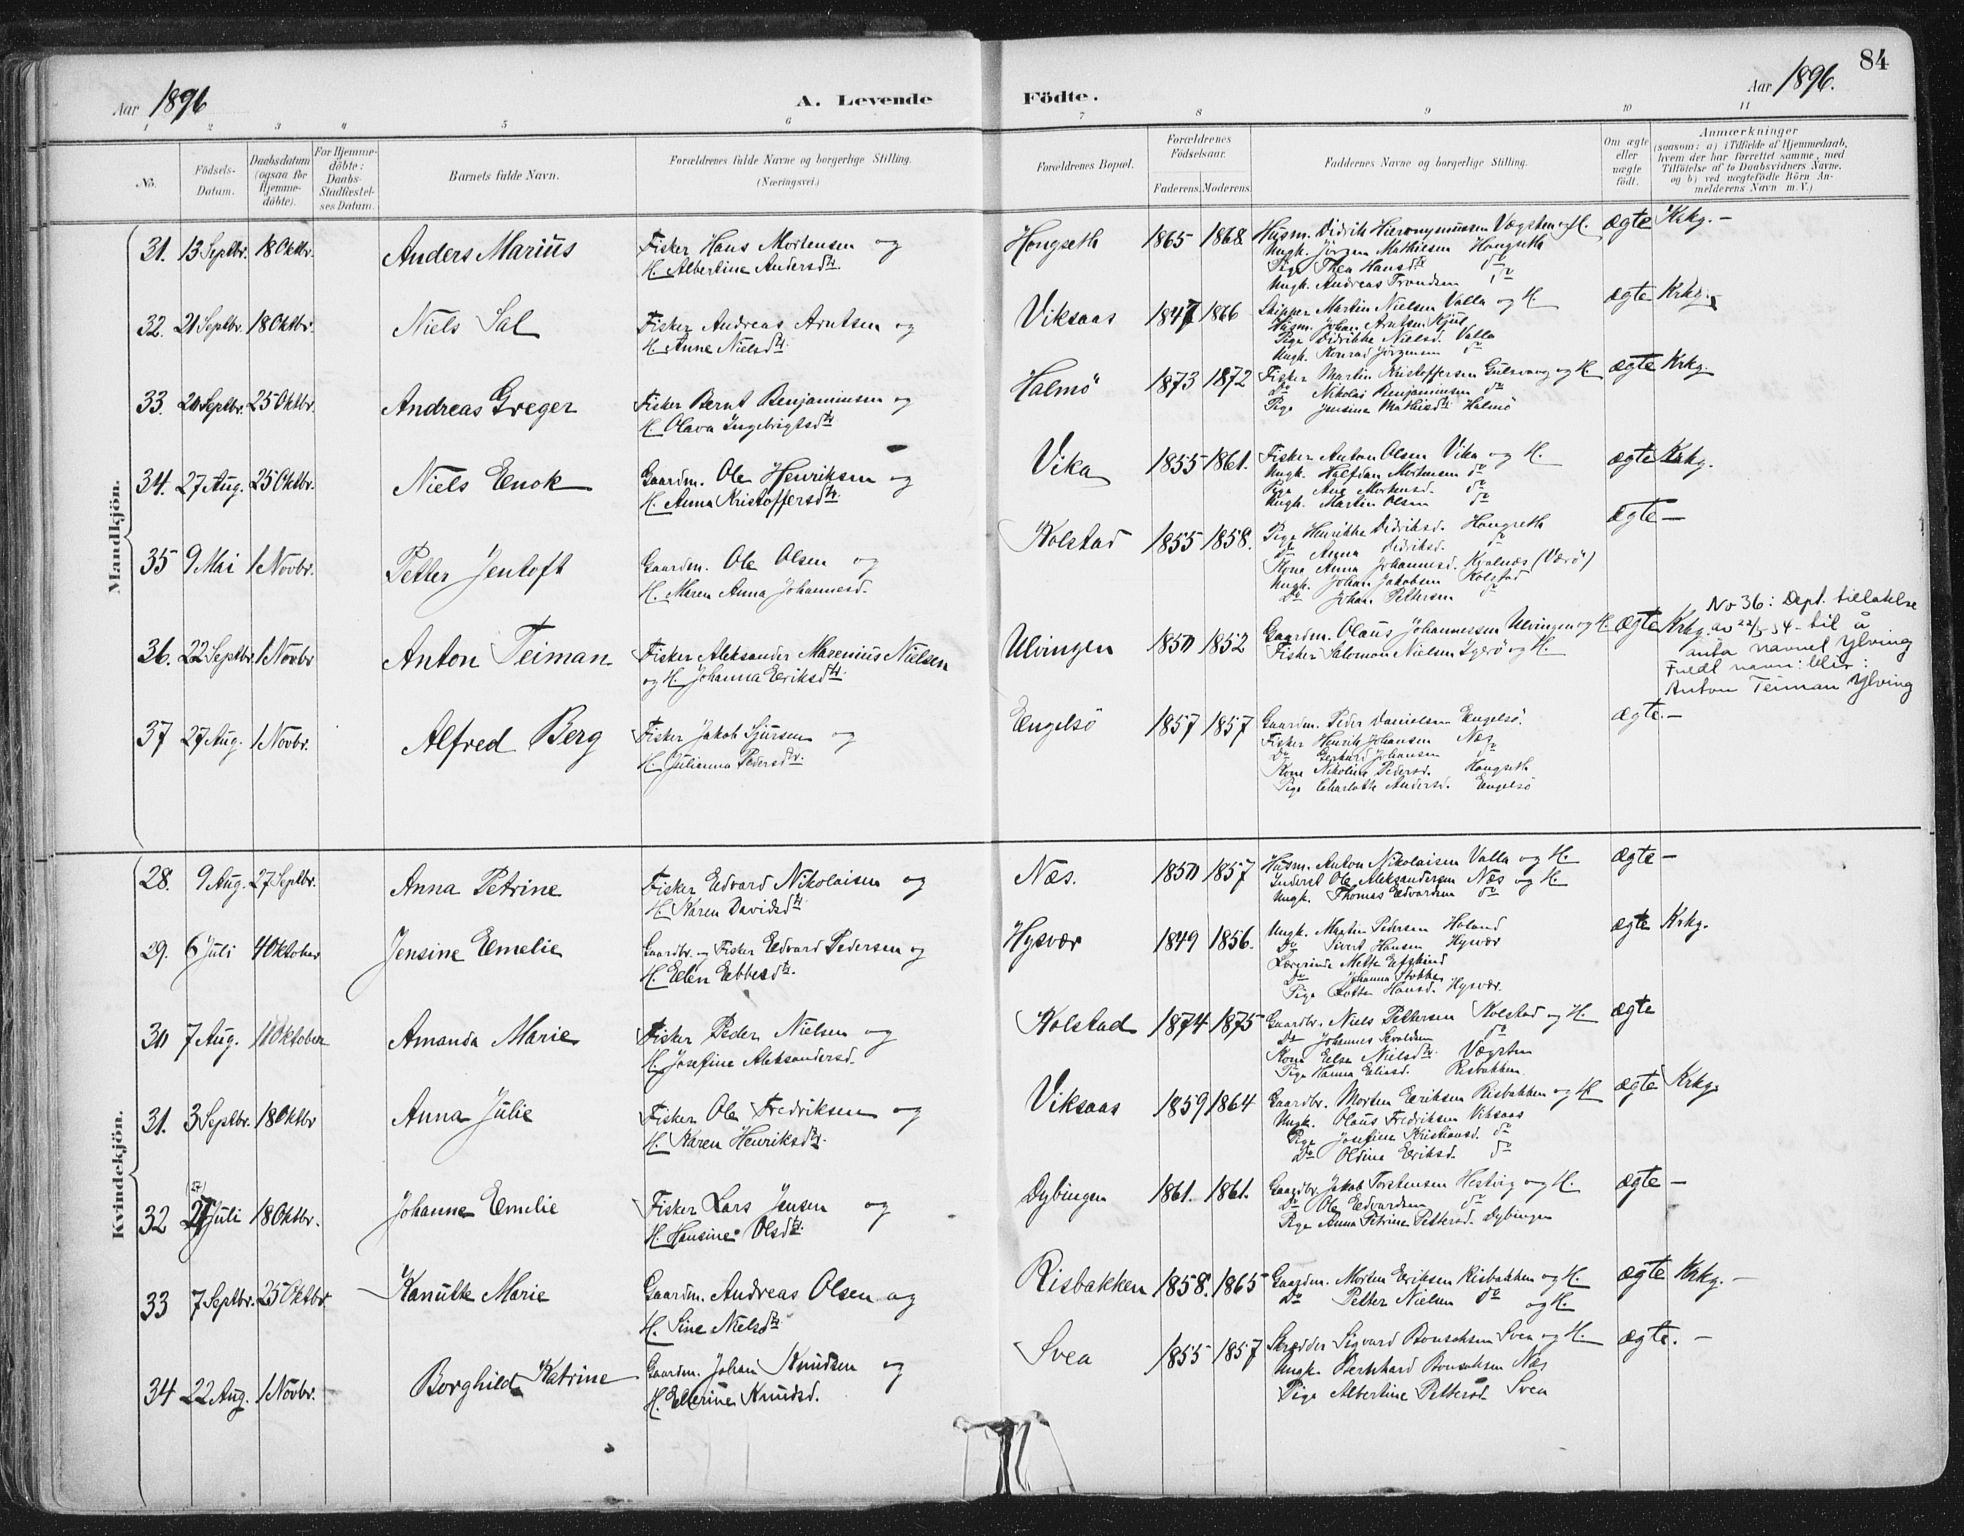 84
Aar 1896 A. Levende Födte. Aar 1896.
1 2 3 4 5 6 7 8 9 10 11
No.
Födsels-Datum.
Daabsdatum (ogsaa for Hjemme-döbte).
For Hjemme-döbte: Daabs-Stadfæstel-ses Datum.
Barnets fulde Navn.
Forældrenes fulde Navne og borgerlige Stilling.
(Næringsvei.)
Forældrenes Bopæl.
Forældrenes Födselsaar.
Faderens. Moderens.
Faddernes Navne og borgerlige Stilling.
Om ægte eller uægte födt.
Anmærkninger
(saasom: a) i Tilfælde af Hjemmedaab,
hvem der har forrettet samme, med
Tilföielse af to Daabsvidners Navne.
og b) ved uægtefödte Börn An-
melderens Navn m. V.)
Mandkjön.
31. 13 Septbr. 18 Oktbr. Anders Marius Fisker Hans Mortensen og
H. Albertine Andersdtr.
Hongseth 1865 1868 Husm. Didrik Hieronymussen Vægsten og H. ægte Krkg. –
Ungk. Jörgen Mathisen Hongseth
Pige Thea Hansdtr do
Ungk. Andreas Trondsen do
32. 21 Septbr. 18 Oktbr. Niels Sal Fisker Andreas Arntsen og
H. Anne Nielsdtr.
Viksaas 1847 1866 Skipper Martin Nielsen Valla og H. ægte Krkg.
Husm. Johan Arntsen
Pige Didrikke Nielsd. Valla
Ungk. Konrad Jörgensen do
33. 20 Septbr. 25 Oktbr. Andreas Greger Fisker Bernt Benjaminsen og
H. Olava Ingebrigtsdtr
Halmö 1873 1872 Fisker Martin Kristoffersen Gulsvaag og H. ægte Krkg.
Do Nikolai Benjaminsen do
Pige Jensine Mathisdtr. Halmö
34. 27 Aug. 25 Oktbr. Niels Enok Gaardm. Ole Henriksen og
H. Anna Kristoffersdtr.
Vika 1855 1861. Fisker Anton Olsen Vika og H. ægte Krkg.
Ungk. Halfdan Mortensen do
Pige Ane Mortensd. do
Ungk. Martin Olsen do
35 9 Mai 1 Novbr. Petter Jentoft Gaardm. Ole Olsen og
H. Maren Anna Johannesd.
Kolstad 1855 1858. Pige Henrikke Didriksd. Hongseth ægte –
do Anna Didriksd. do
Kone Anna Johannesd. Kvalnæs (Værö)
Ungk. Johan Jakobsen Kolstad
Do Johan Pettersen do
36. 22 Septbr. 1 Novbr Anton Teiman Fisker Aleksander Marenius Nielsen
og H. Johanna Eriksdtr.
Ulvingen 1850 1852 Gaardm. Olaus Johannessen Ulvingen og H. ægte Krkg.
Fisker Salomon Nielsen Igerö og H.
No 36: Dept. tillatelse
av 22/5-54 - til å
anta navnet Ylving
Fuldt navn: blir:
Anton Teiman Ylving
37 27 Aug. 1 Novbr. Alfred Berg Fisker Jakob Sjursen og
H. Julianna Pedersdtr.
Engelsö 1857 1857 Gaardm. Peder Danielsen Engelsö. ægte. –
Fisker Henrik Johansen Næs
Do Gerhard Johansen do
Kone Nikoline Pedersd. Hongseth
Pige Charlotte Andersd. Engelsö
Kvindekjön.
28. 9 Aug. 27 Septbr. Anna Petrine Fisker Edvard Nikolaisen og
H. Karen Davidsdtr
Næs. 1850 1857 Husm. Anton Nikolaisen Valla og H. ægte –
Inderst Ole Aleksandersen Næs og H.
Ungk. Thomas Edvardsen do
29. 6 Juli 4 Oktober Jensine Emelie Gaardbr. og Fisker Edvard Pedersen og
H. Elen Ebbesdtr.
Hysvær 1849 1856. Ungk. Martin Pedersen Holand ægte Krkg.
Do Sivert Hansen Hysvær
Lærerinde Mette Eftskind
Do Johanna Stokka
Pige Lotte Hansd. Hysvær.
30 7 Aug. 11 Oktober Amanda Marie Fisker Peder Nielsen og
H. Josefine Aleksandersd.
Kolstad 1874 1875 Gaardbr. Niels Pettersen Kolstad og H. ægte
Do Johannes do
Kone Elsa Nielsdtr. Vægsten
Pige Hanna Eliasd. Risbakken.
31. 3 Septbr. 18 Oktbr Anna Julie Fisker Ole Fredriksen og
H. Karen Henriksdtr.
Viksaas 1859 1864 Gaardbr. Morten Eriksen Risbakken og H ægte Krkg.
Ungk. Olaus Fredriksen Viksaas
Pige Josefine Kristiansd. do
Do Oldina Eriksd. do
32 27 Juli 18 Oktbr. Johanna Emelie Fisker Lars Jensen og
H. Hansine Olsdtr.
Dybingen 1861. 1861. Gaardbr. Jakob Torstensen Hestvig og H. ægte –
Do Ole Edvardsen do
Pige Anna Petrine Pettersd. Dybingen
33 7 Septbr. 25 Oktbr Kanutte Marie Gaardm. Andreas Olsen og
H. Sine Nielsdtr
Risbakken 1858. 1865 Gaardm. Morten Eriksen Risbakken og H. ægte Krkg. –
Do Petter Nielsen do og H.
34 22 Aug. 1 Novbr. Borghild Katrine Gaardm. Johan Knudsen og
H. Elerine Knudsd.
Svea 1855 1857 Skrædder Sigvard Bonsaksen Svea og H. ægte. –
Ungk. Bernhard Bonsaksen Næs
Pige Albertine Pettersd. Svea